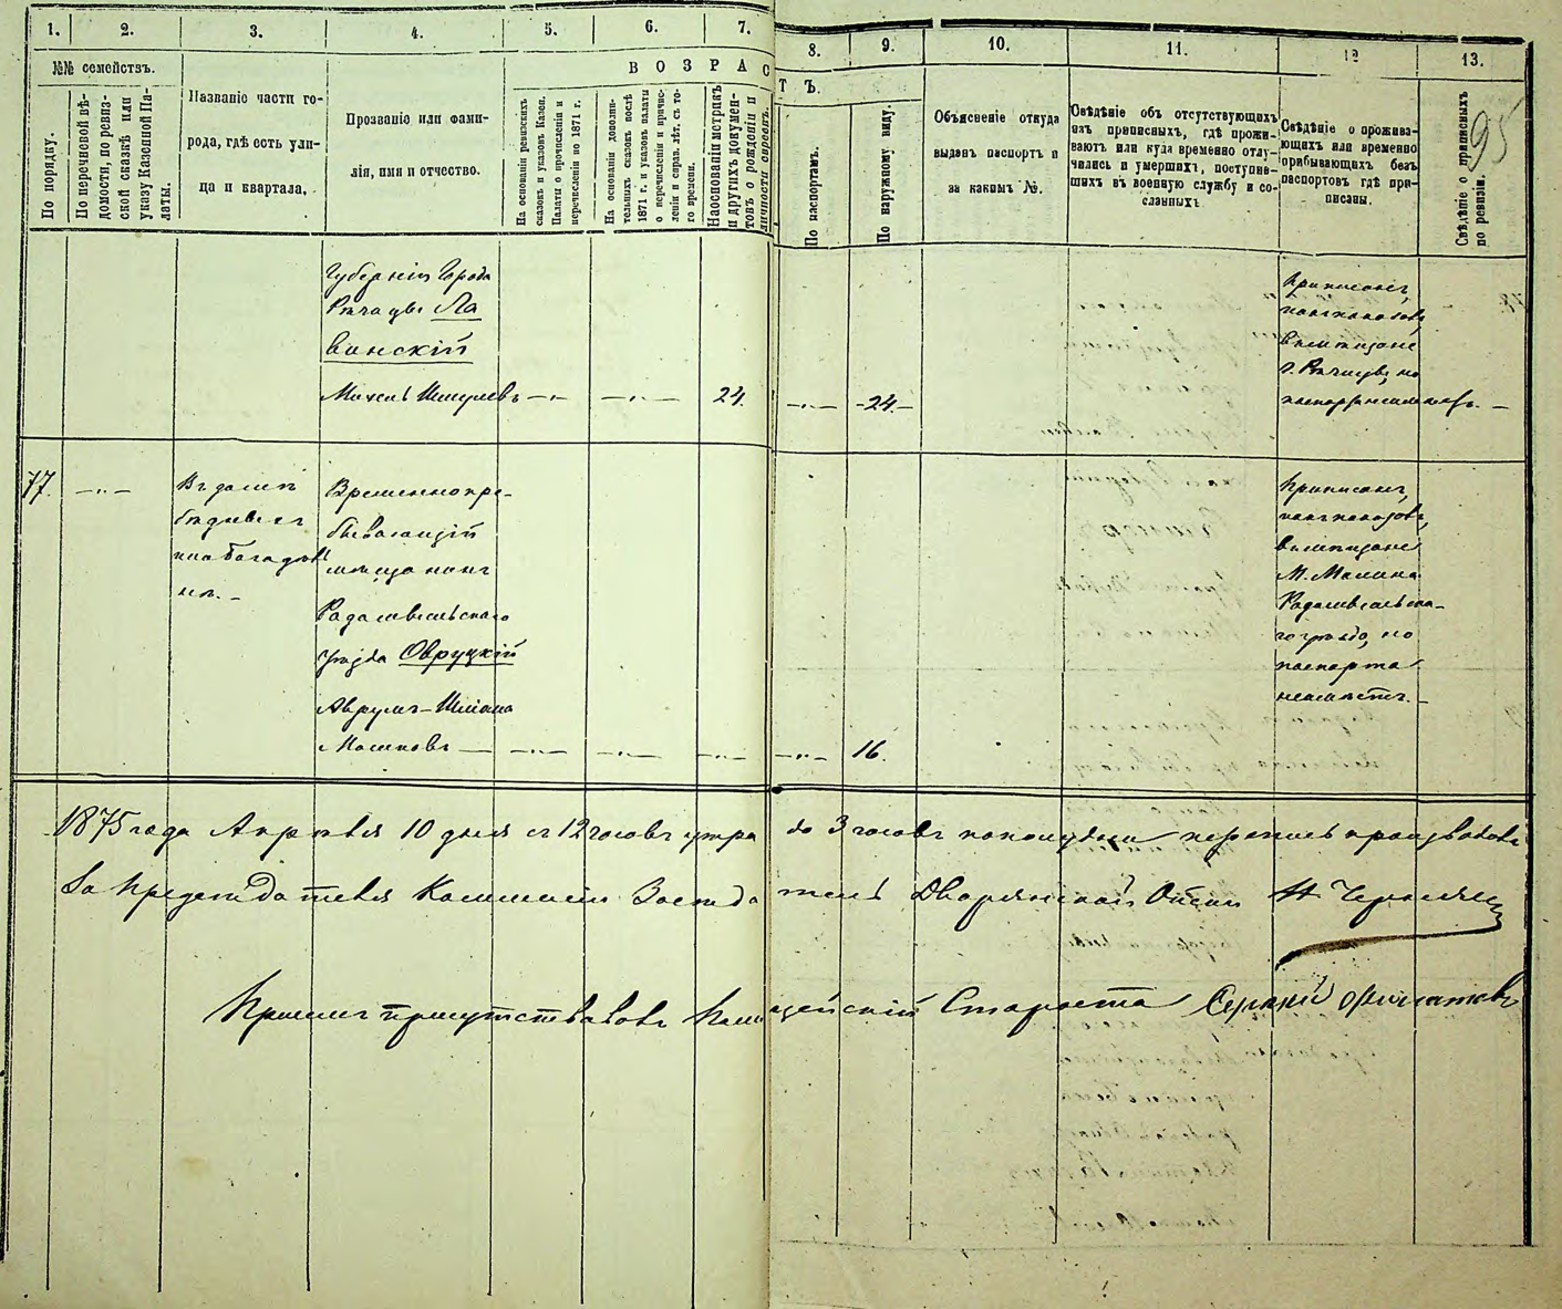 1.
2.
3.
4.
5.
6.
7.
8.
9.
10.
11.
12
13.
95
№№ семействъ.
ВОЗРАС
ТЪ.
По порядку.
По перечневой вѣ-
домости, по ревиз-
ской сказкѣ или
указу Казенной Па-
латы.
Названіе части го-
рода, гдѣ есть ули-
ца и квартала.
Прозваніе или фами-
лія, имя и отчество.
На основаніи ревизскихъ
сказокъ и указовъ Казен.
Палаты о причисленіи и
перечисленіи по 1871 г.
На основаніи дополни-
тельныхъ сказокъ послѣ
1871 г. и указовъ палаты
о перечисленіи и причис-
леніи и справ. лѣт. съ то-
го времени.
На основаніи метрикъ
и другихъ докумен-
товъ о рожденіи и
личности евреевъ.
По паспортамъ.
По наружному виду.
Объясненіе откуда
выданъ паспортъ и
за какимъ №.
Свѣдѣніе объ отсутствующихъ
изъ приписныхъ, гдѣ прожи-
ваютъ или куда временно отлу-
чились и умершихъ, поступив-
шихъ въ военную службу и со-
сланныхъ
Свѣдѣніе о прожива-
ющихъ или временно
прибывающихъ безъ
паспортовъ гдѣ при-
писаны.
Свѣдѣніе о приписныхъ
по ревизіи.
Губерніи Города
Рѣчицы Ла
винскій
Михель Шмулевъ —„— —„— 24. —„— -24.-
Приписанъ,
какъ показовъ,
въ мѣщане
г. Рѣчицы, но
паспорта неимѣетъ. —
77. —„—
Въ домѣ
бѣдныхъ
или богадѣль
нѣ. -
Временно пре-
бывающій
мѣщанинъ
Радомысльскаго
уѣзда Овруцкій
Аврумъ-Шлиома
Мошковъ — —„— —„— —„— —„— 16.
Приписанъ,
какъ показовъ,
въ мѣщане
М. Малина
Радомысльска-
го уѣзда, но
паспорта
неимѣетъ. -
1875 года Апрѣля 10 дня съ 12 часовъ утра до 3 часовъ пополудни перепись производовъ
За Предсѣдателя Коммисіи Засѣдатель Дворянской Опеки Н Черняк
При семъ присутствовавъ Полицейскій Староста Сергѣй Филатовъ